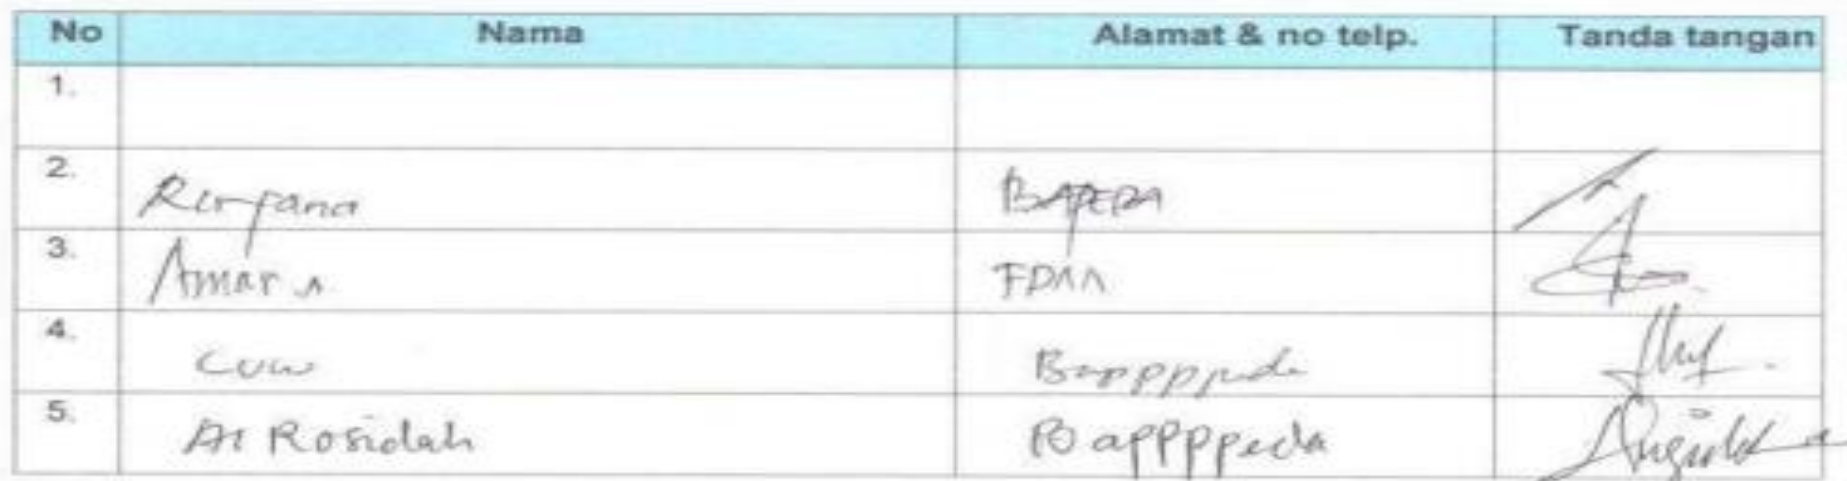 No Nama Alamat & no telp. Tanda tangan
1.
2. BAPEDA
3. Amar
4. Bappppeda
5. Ai Rosidah Bappppeda